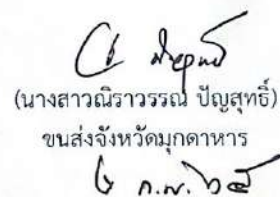 (นางสาวณิราวรรณ ปัญสุทธิ์)
ขนส่งจังหวัดมุกดาหาร
ก.พ. ๖๕